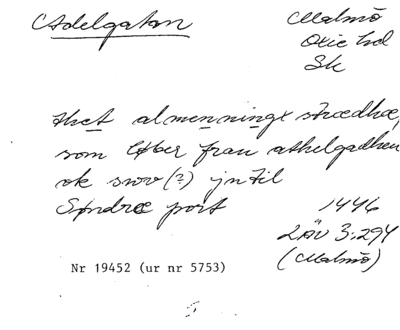 Adelgatan
Malmö
Oxie hd
Sk
thet almenninge strædhe,
som løber fran athelgadhen
ok snov (?) jn til
Søndræ port
1446
LÄU 3:294
(Malmö)
Nr 19452 (ur nr 5753)